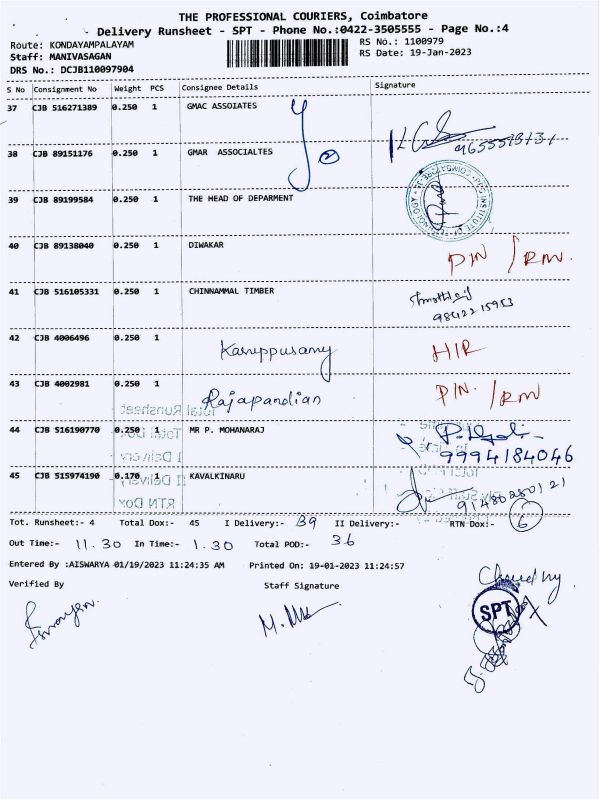 THE PROFESSIONAL COURIERS, Coimbatore
Delivery Runsheet - SPT - Phone No.:0422-3505555 - Page No.:4
Route: KONDAYAMPALAYAM RS No.: 1100979
Staff: MANIVASAGAN RS Date: 19-Jan-2023
DRS No.: DCJB110097904
S No Consignment No Weight PCS Consignee Details Signature
37 CJB 516271389 0.250 1 GMAC ASSOIATES
38 CJB 89151176 0.250 1 GMAR ASSOCIALTES 2
39 CJB 89199584 0.250 1 THE HEAD OF DEPARMENT
40 CJB 89138040 0.250 1 DIWAKAR D/N / RM.
41 CJB 516105331 0.250 1 CHINNAMMAL TIMBER
9842215953
42 CJB 4006496 0.250 1 Karuppusamy H/R
43 CJB 4002981 0.250 1 Rajapandian D/N. / RM
44 CJB 516190770 0.250 1 MR P. MOHANARAJ
9994184046
45 CJB 515974190 0.170 1 KAVALKINARU
91480280121
Tot. Runsheet:- 4 Total Dox:- 45 I Delivery:- 39 II Delivery:- RTN Dox:- 6
Out Time:- 11.30 In Time:- 1.30 Total POD:- 36
Entered By :AISWARYA 01/19/2023 11:24:35 AM Printed On: 19-01-2023 11:24:57
Verified By Staff Signature
SPT